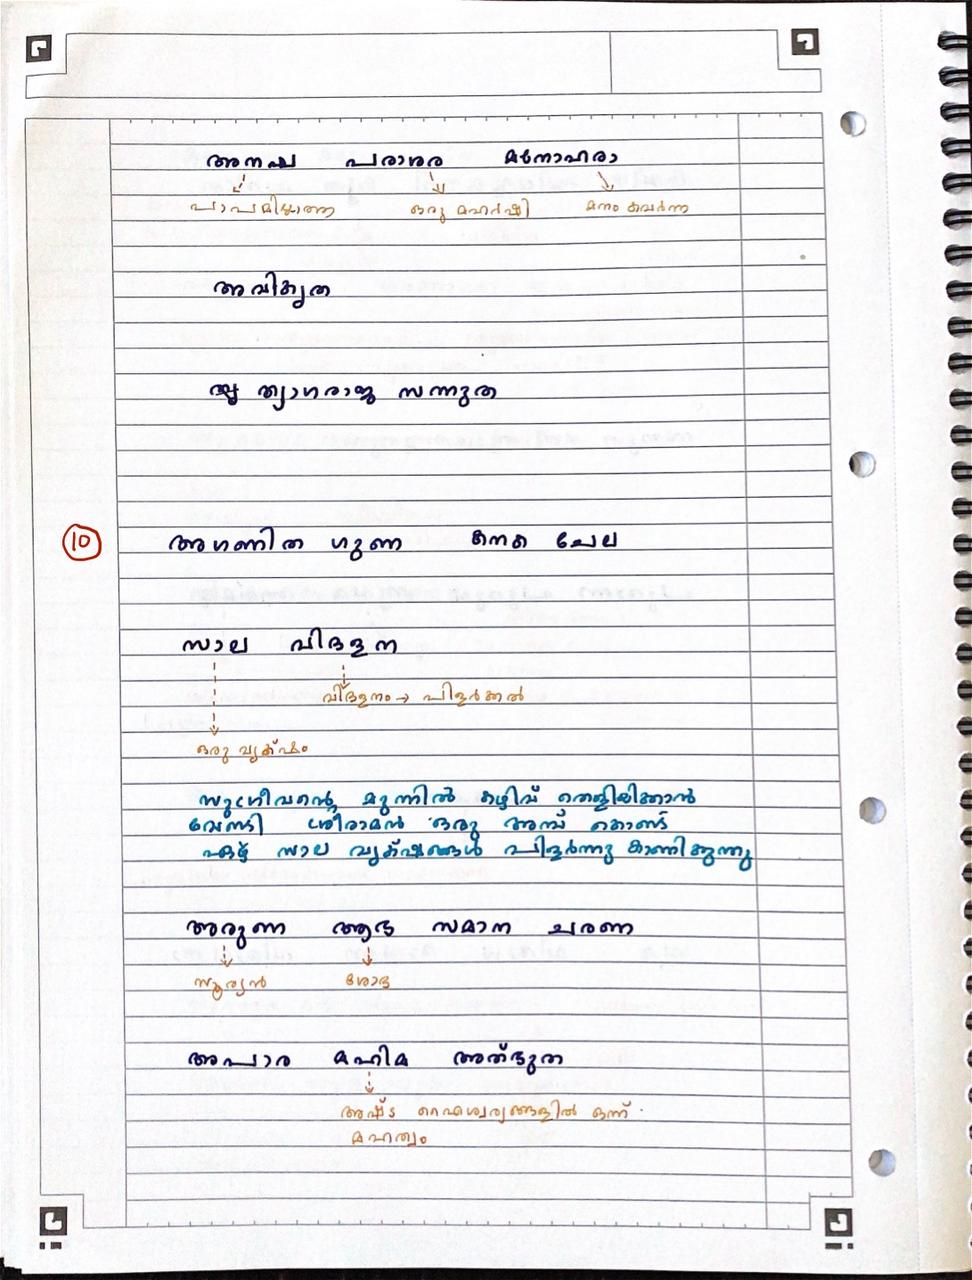 അനഘ പരാശര മനോഹരാ
പാപമില്ലാത്ത ഒരു മഹർഷി മനം കവർന്ന
അവികൃത
ത്യാഗരാജ സന്നുത
10 അഗണിത ഗുണ കനക ചേല
സാല വിദളന
വിദളനം → പിളർക്കൽ
ഒരു വൃക്ഷം
സുഗ്രീവന്റെ മുന്നിൽ കഴിവ് തെളിയിക്കാൻ
വേണ്ടി ശ്രീരാമൻ ഒരു അമ്പ് കൊണ്ട്
ഏഴ് സാല വൃക്ഷങ്ങൾ പിളർന്നു കാണിക്കുന്നു
അരുണ ആഭ സമാന ചരണ
സൂര്യൻ ശോഭ
അപാര മഹിമ അത്ഭുത
അഷ്ട ഐശ്വര്യങ്ങളിൽ ഒന്ന്.
മഹത്വം